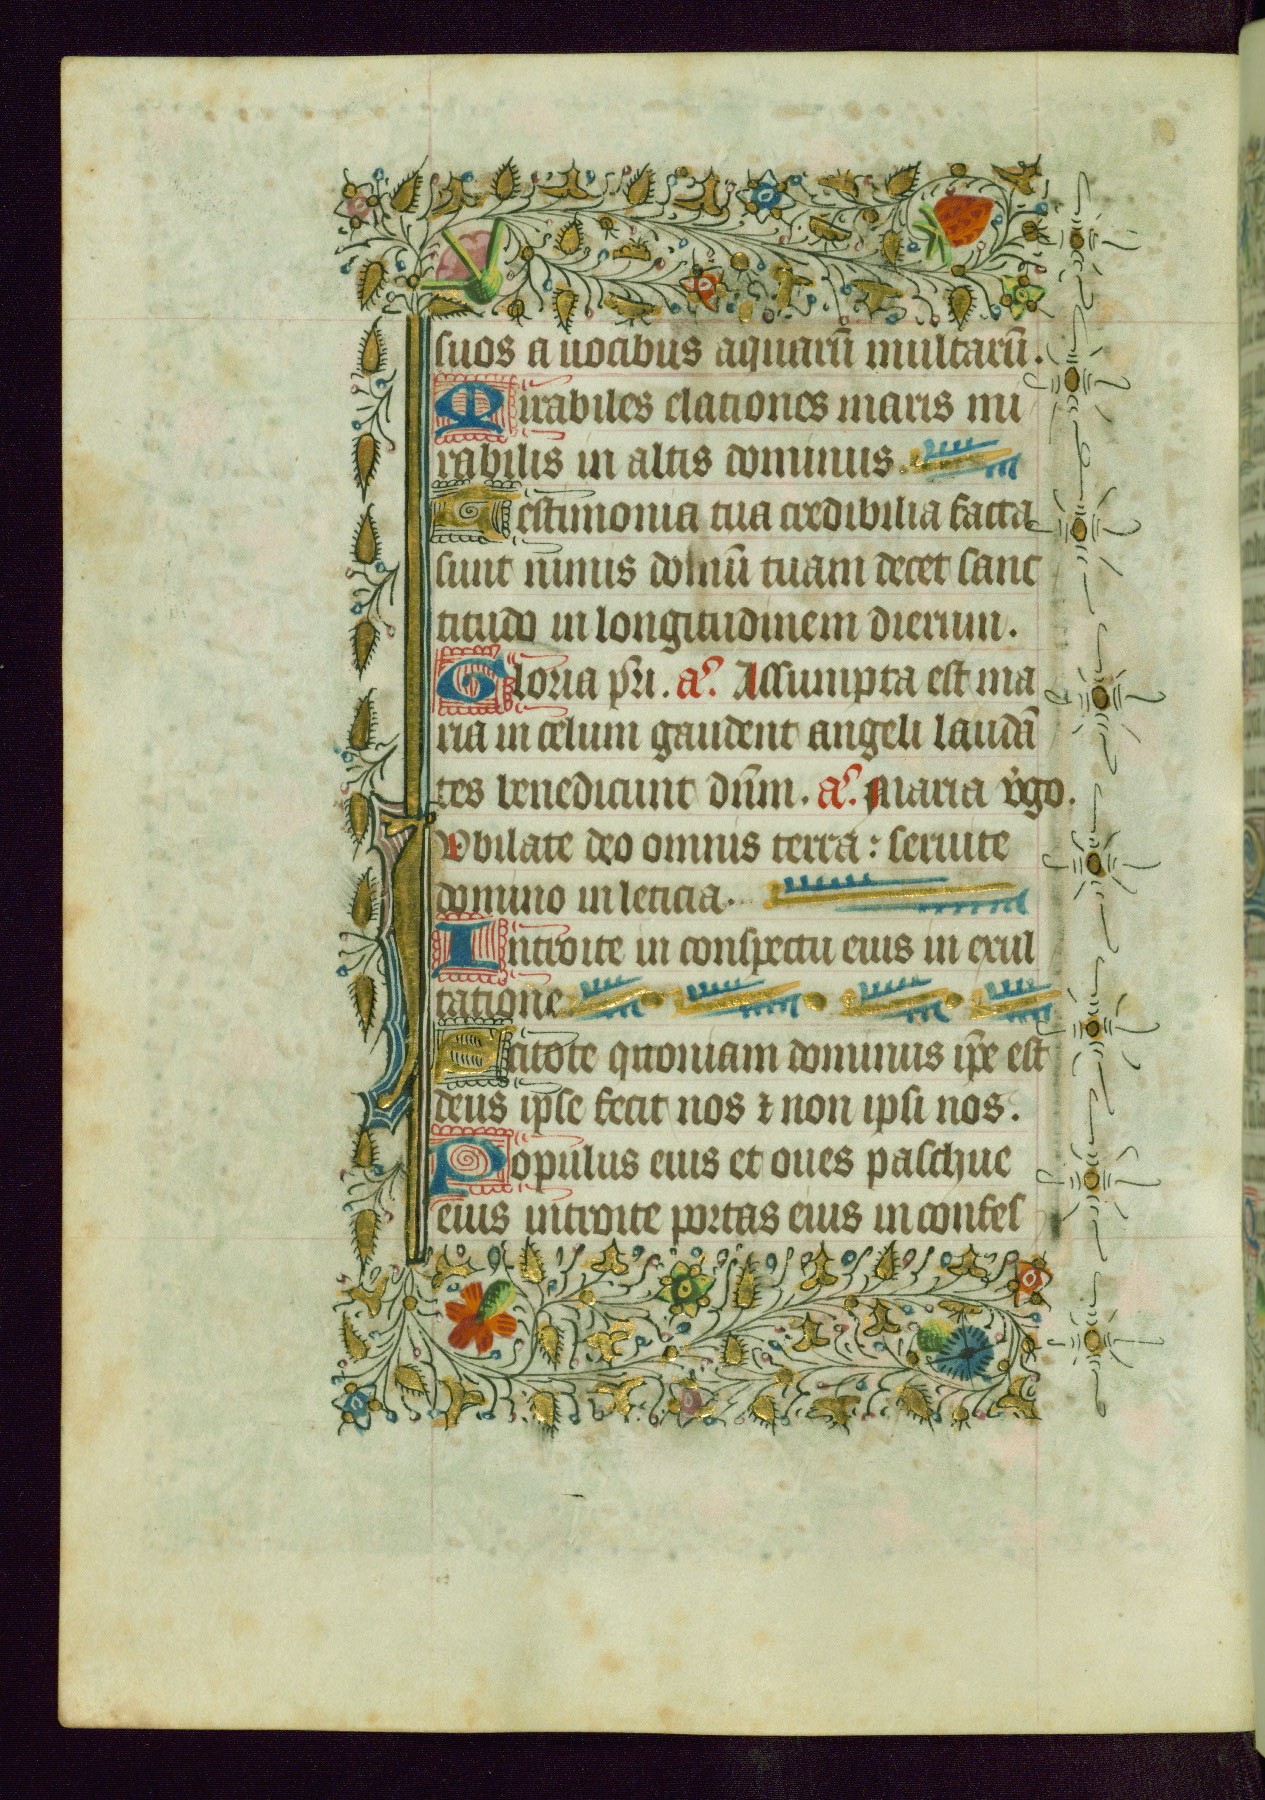 suos a uocibus aquarū multarū.
Mirabiles elationes maris mi
rabilis in altis dominus.
Testimonia tua credibilia facta
sunt nimis domū tuam decet sanc
titudo in longitudinem dierum.
Gloria pr̄i. an̄. Assumpta est ma
ria in celum gaudent angeli laudā
tes benedicunt dn̄m. an̄. Maria v̄go.
Iubilate deo omnis terra: seruite
domino in leticia.
Introite in conspectu eius in exul
tatione
Scitote quoniam dominus ip̄e est
deus ipse fecit nos ⁊ non ipsi nos.
Populus eius et oues paschue
eius introite portas eius in confes